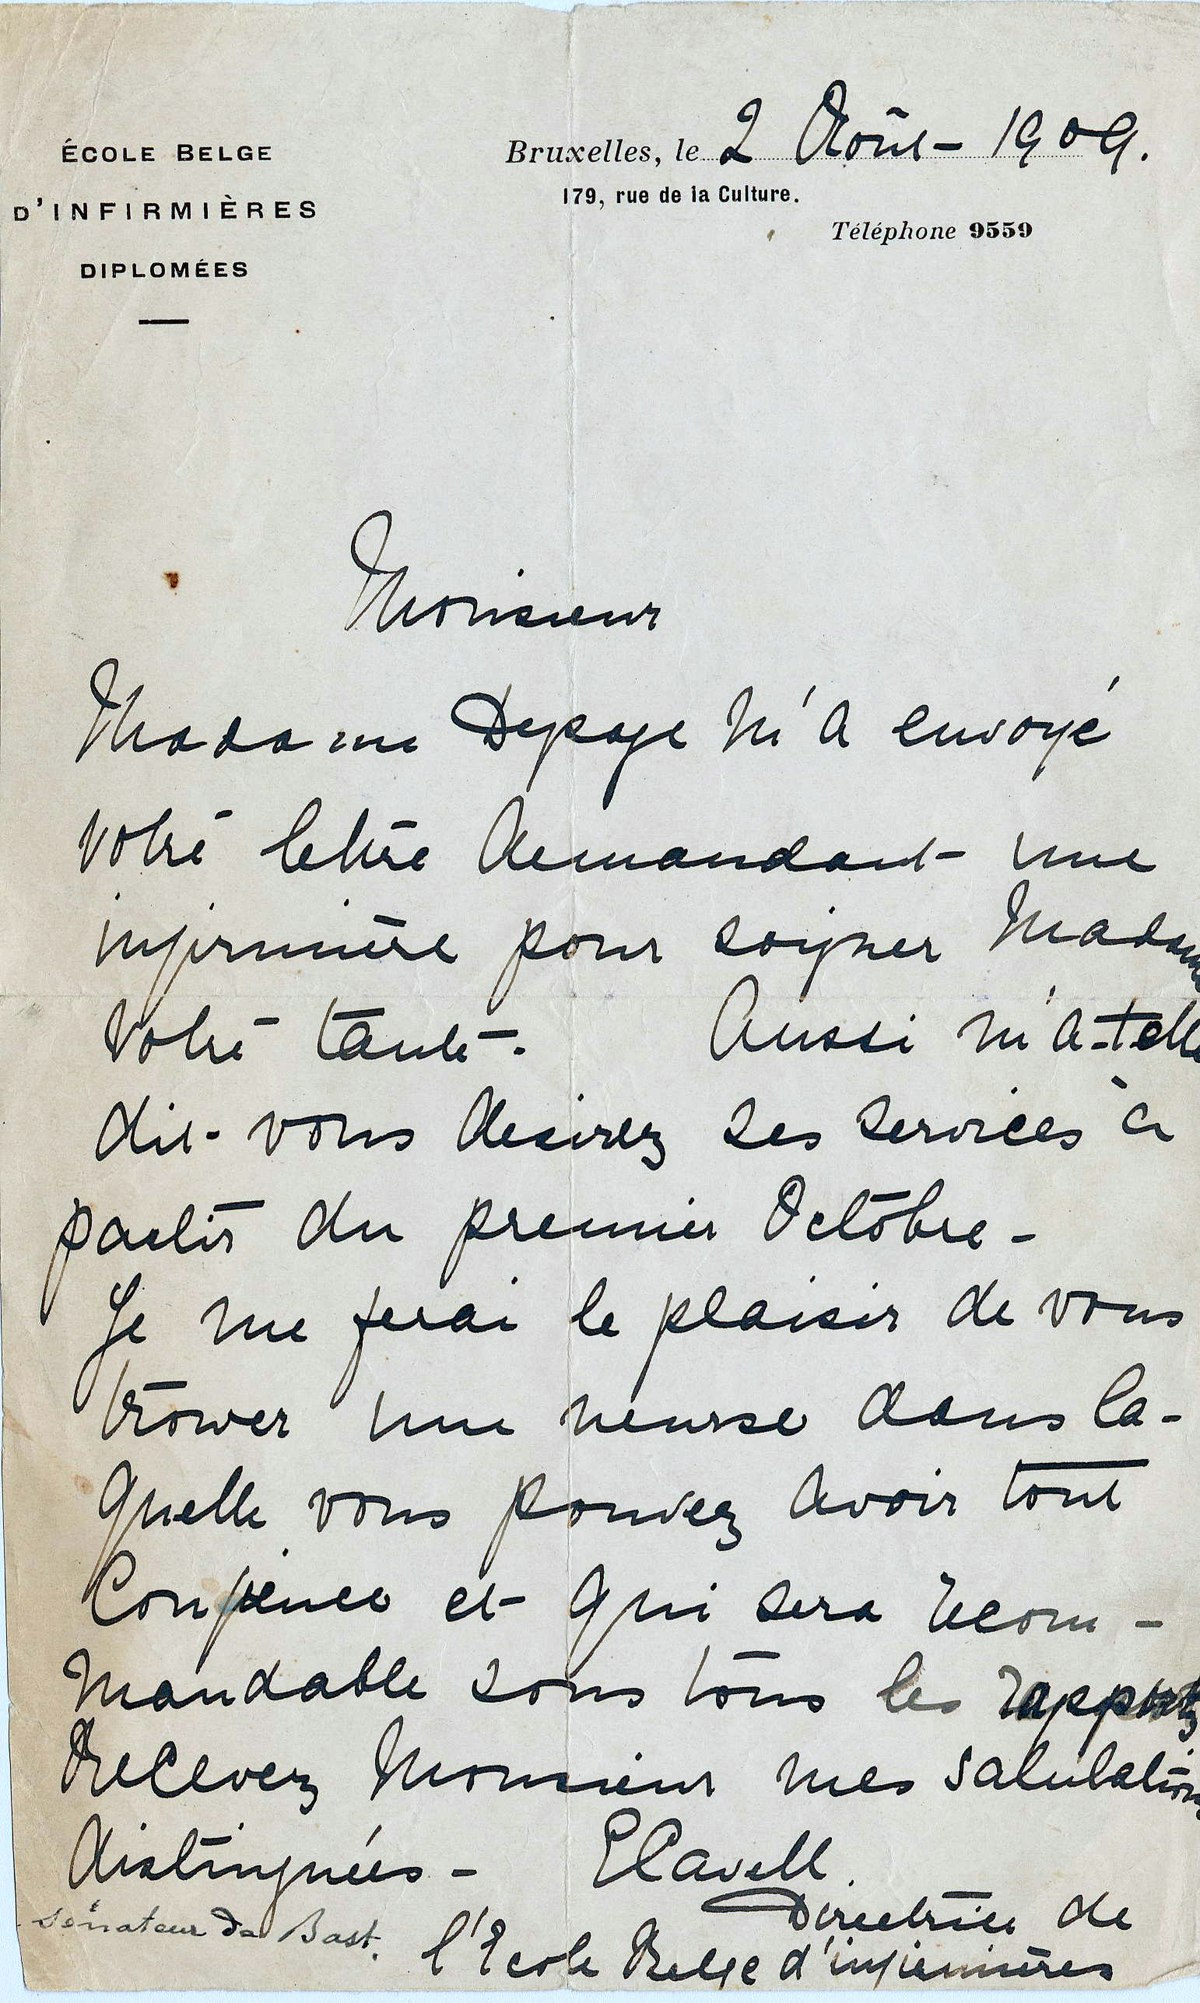 ÉCOLE BELGE
D'INFIRMIÈRES
DIPLOMÉES
Bruxelles, le 2 Août - 1909.
179, rue de la Culture.
Téléphone 9559
Monsieur
Madame Depage m'a envoyé
votre lettre demandant une
infirmière pour soigner Madame
votre tante. Aussi m'a-telle
dit vous desirez ses services à
partir du premier Octobre -
Je me ferai le plaisir de vous
trouver une neurse dans la-
quelle vous pouvez avoir tout
confience et qui sera recom-
mandable sous tous les rapports
Recevez Monsieur mes salutations
distinguées - E Cavell.
Directrice de
l'Ecole Belge d'infirmières
Sénateur De Bast.